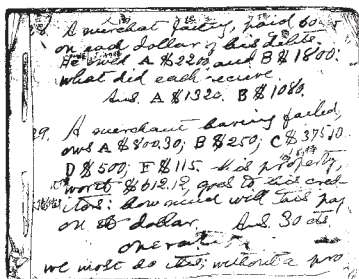 8. A merchat failing, paid 60
on each dollar of his debts.
He owed A $2200 and B $1800:
what did each recieve
Ans. A $1320. B $1080.
29. A merchant having failed,
ows A $800.30; B $250; C $375.10.
D $500; F $115. His property,
worth $612.12, goes to his cred-
itors: how much will this pay
on dollar. Ans. 30 cts
operation
we most do this without a pro